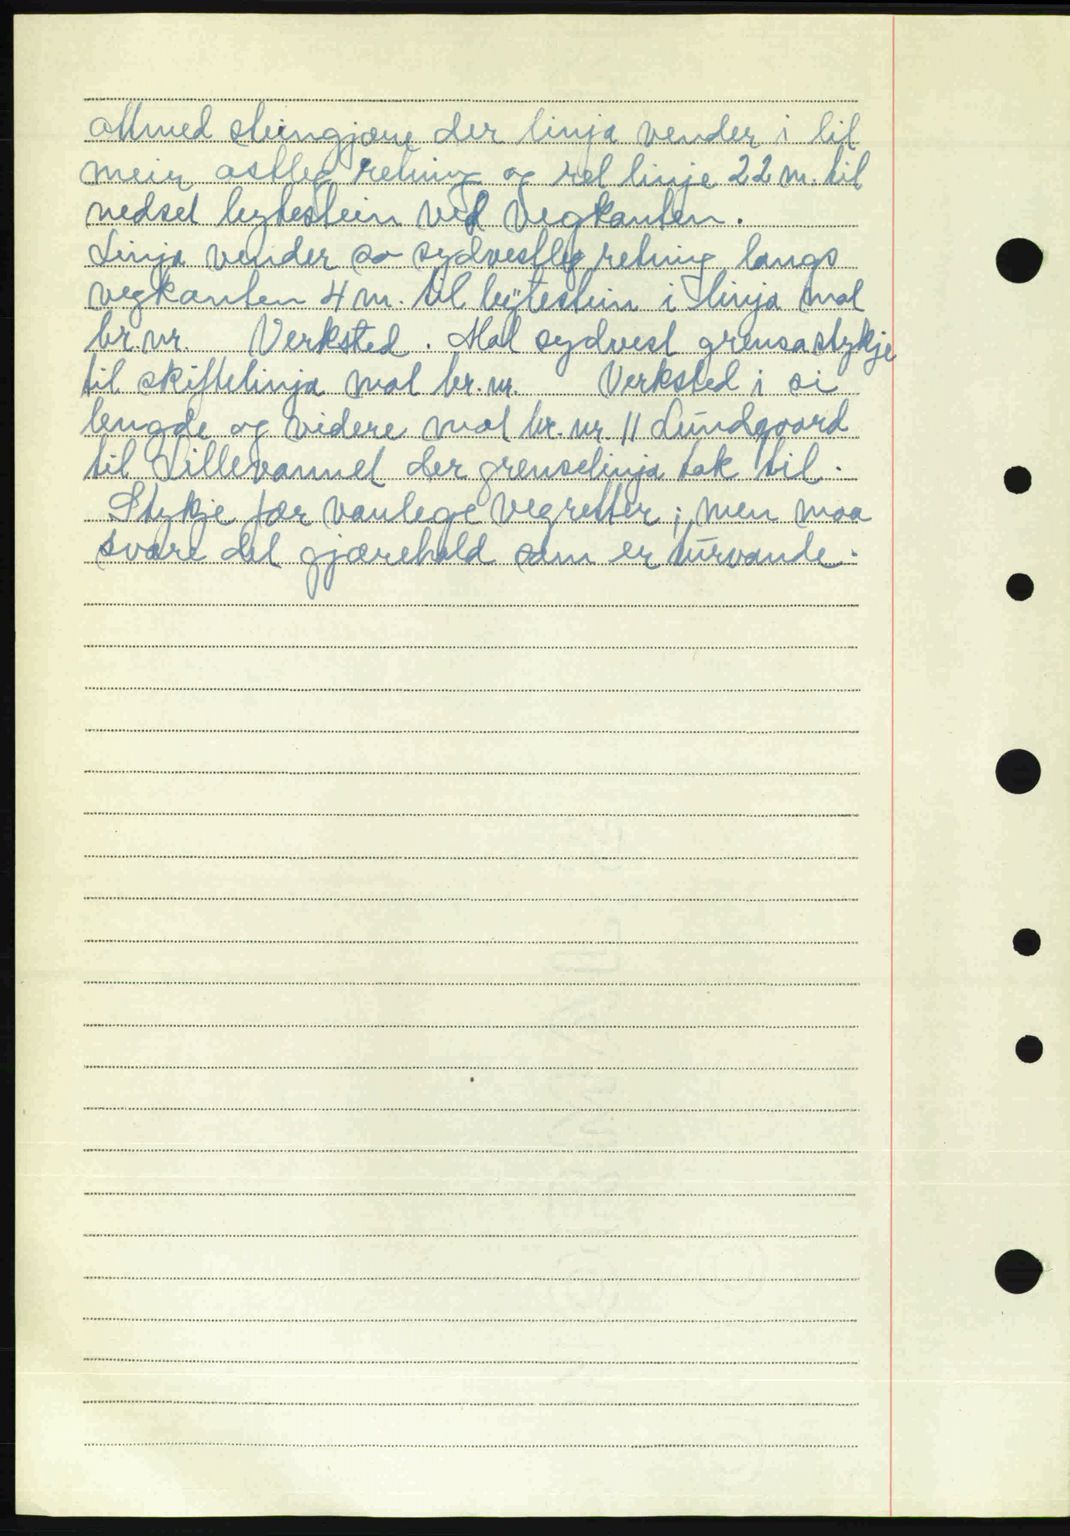 attmed steingjære der linja vender i til
meir astleg retning og ret linje 22 m. til
nedset bytestein ved vegkanten.
Linja vender so sydvestleg retning langs
vegkanten 4 m. til bytestein i linja mot
br.nr. Verksted. Mot sydvest grensa stykje
til skiftelinja mot br.nr. Verksted i si
lengde og videre mot br.nr. 11 Lundgaard
til Lillevannet der grenselinja tok til.
Stykje fær vanlege vegretter; men maa
svare det gjærehold som er turvande.